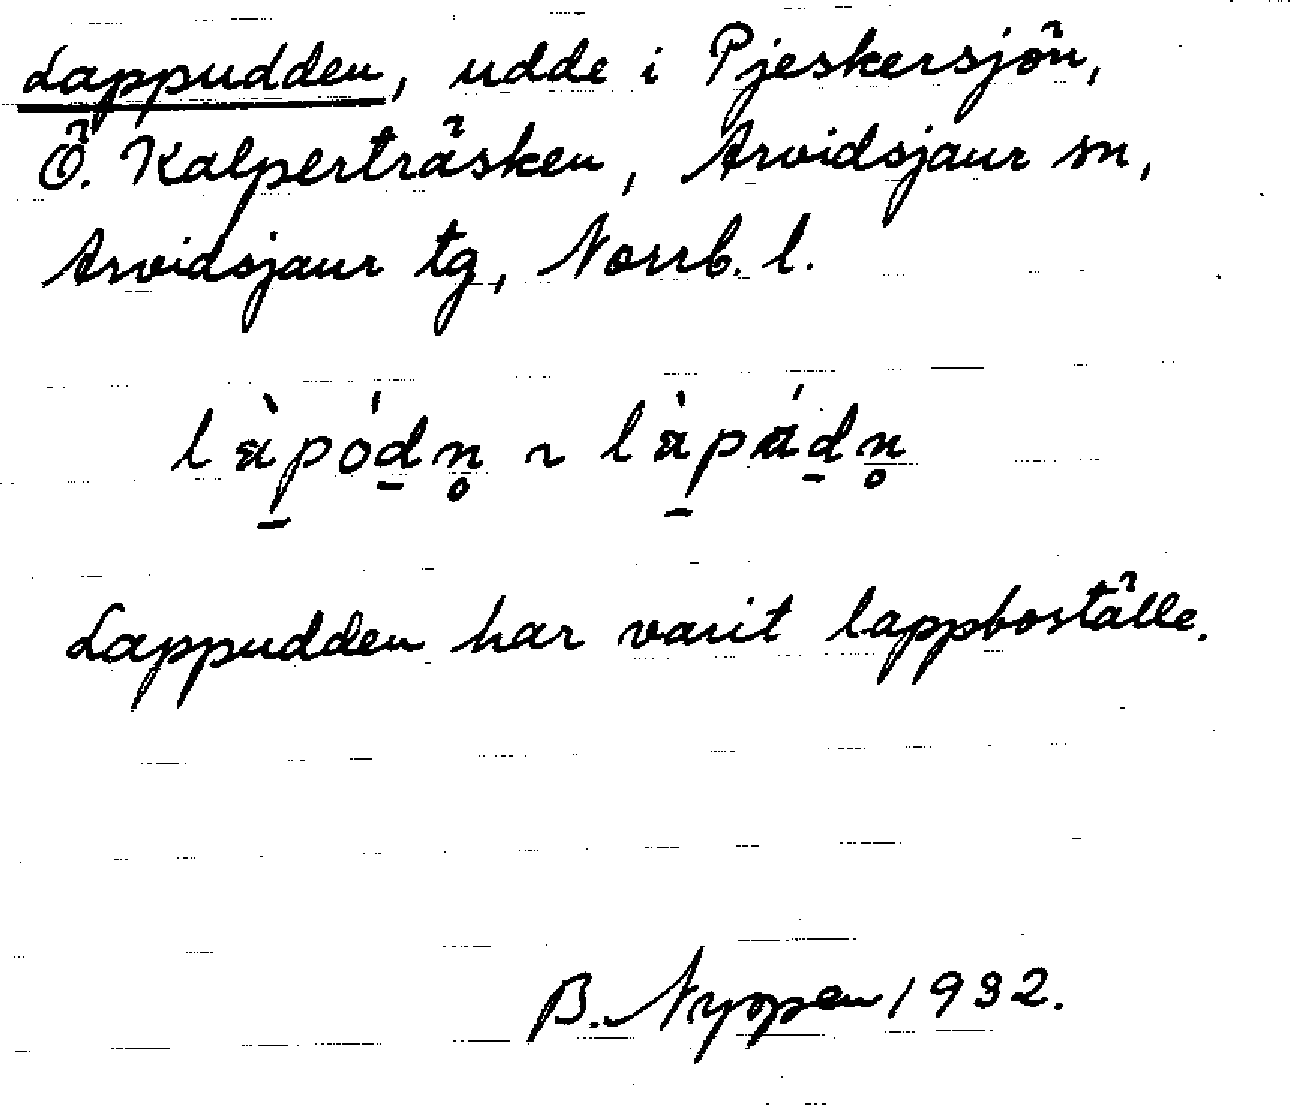 Lappudden, udde i Pjeskersjön,
Ö. Kalperträsken, Arvidsjaur sn,
Arvidsjaur tg, Norrb. l.
Lappudden har varit lappboställe.
B. Nyopen 1932.